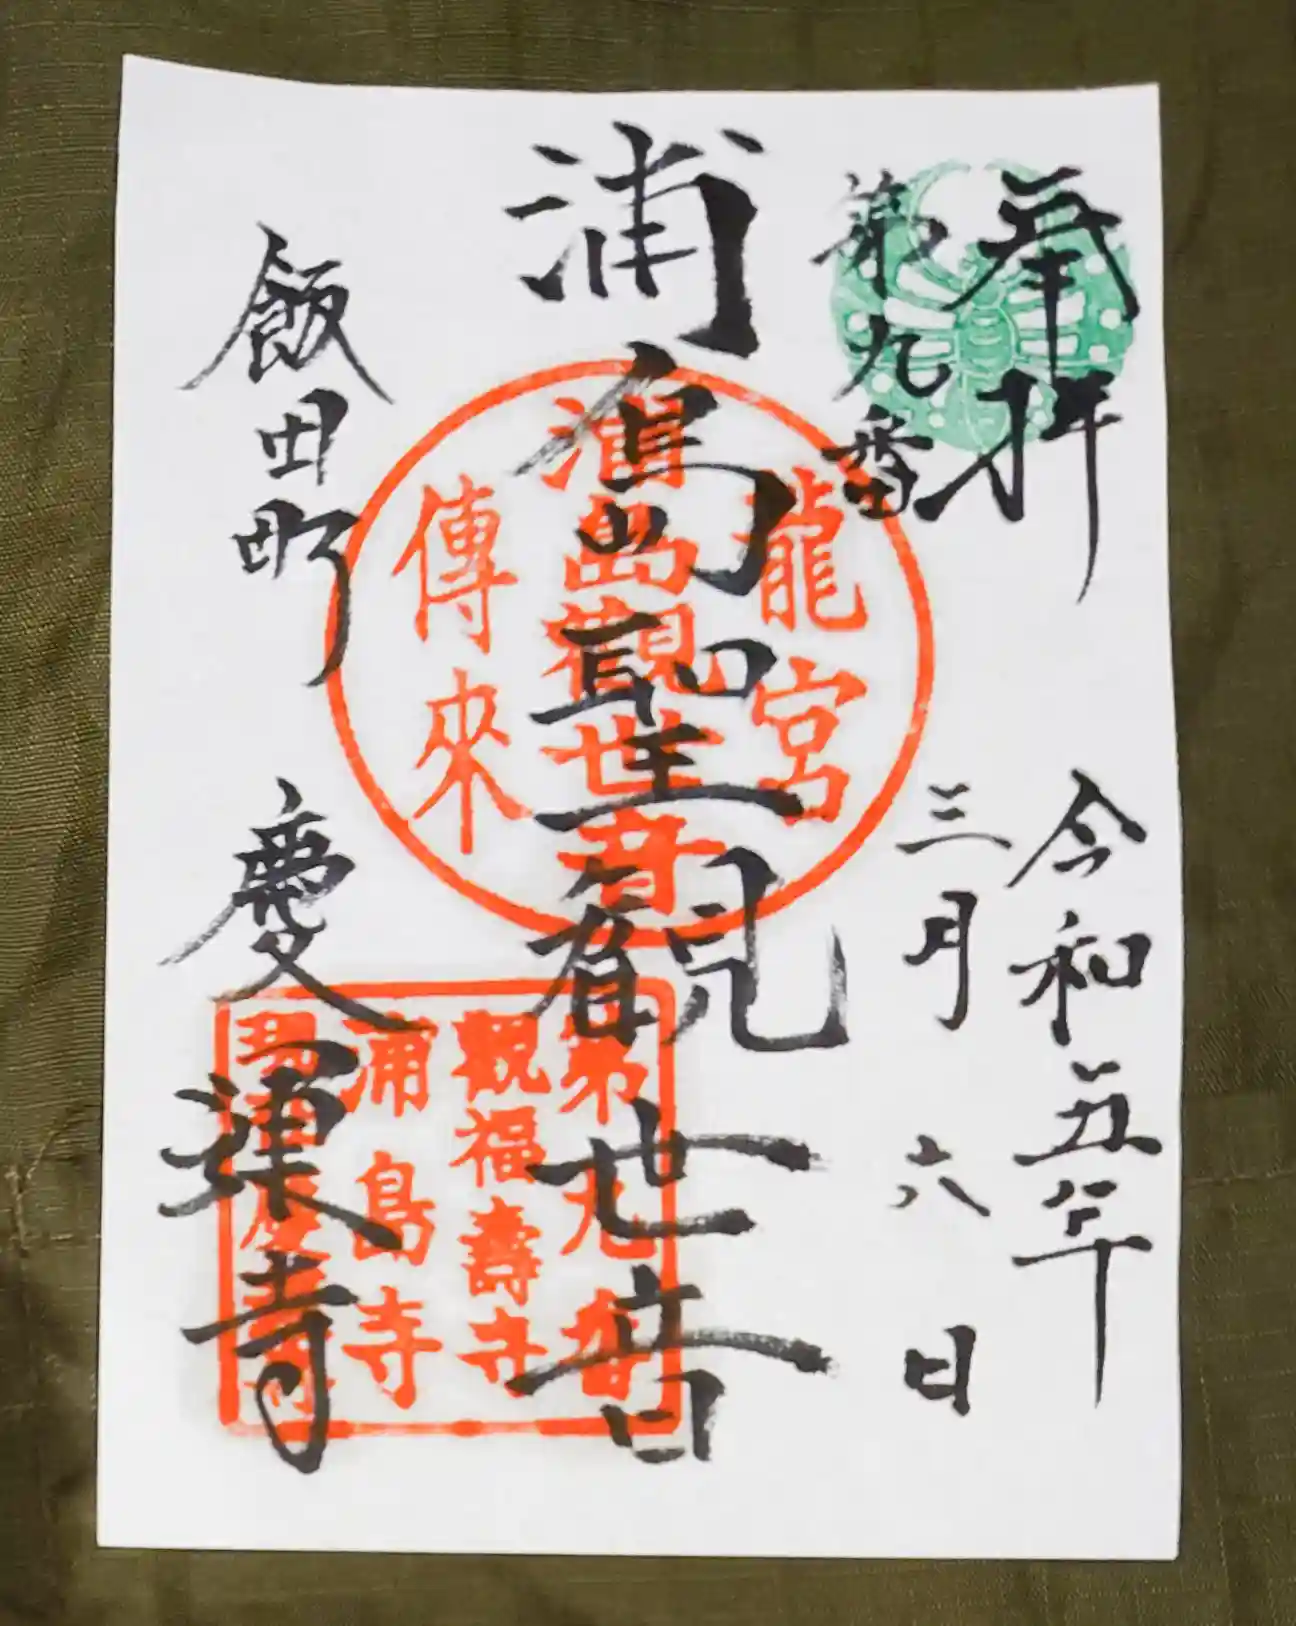 奉拝
第九番
令和五年
三月六日
浦島聖観世音
飯田町
慶運寺
龍宮
浦島觀世音
傳來
第九番
觀福壽寺
浦島寺